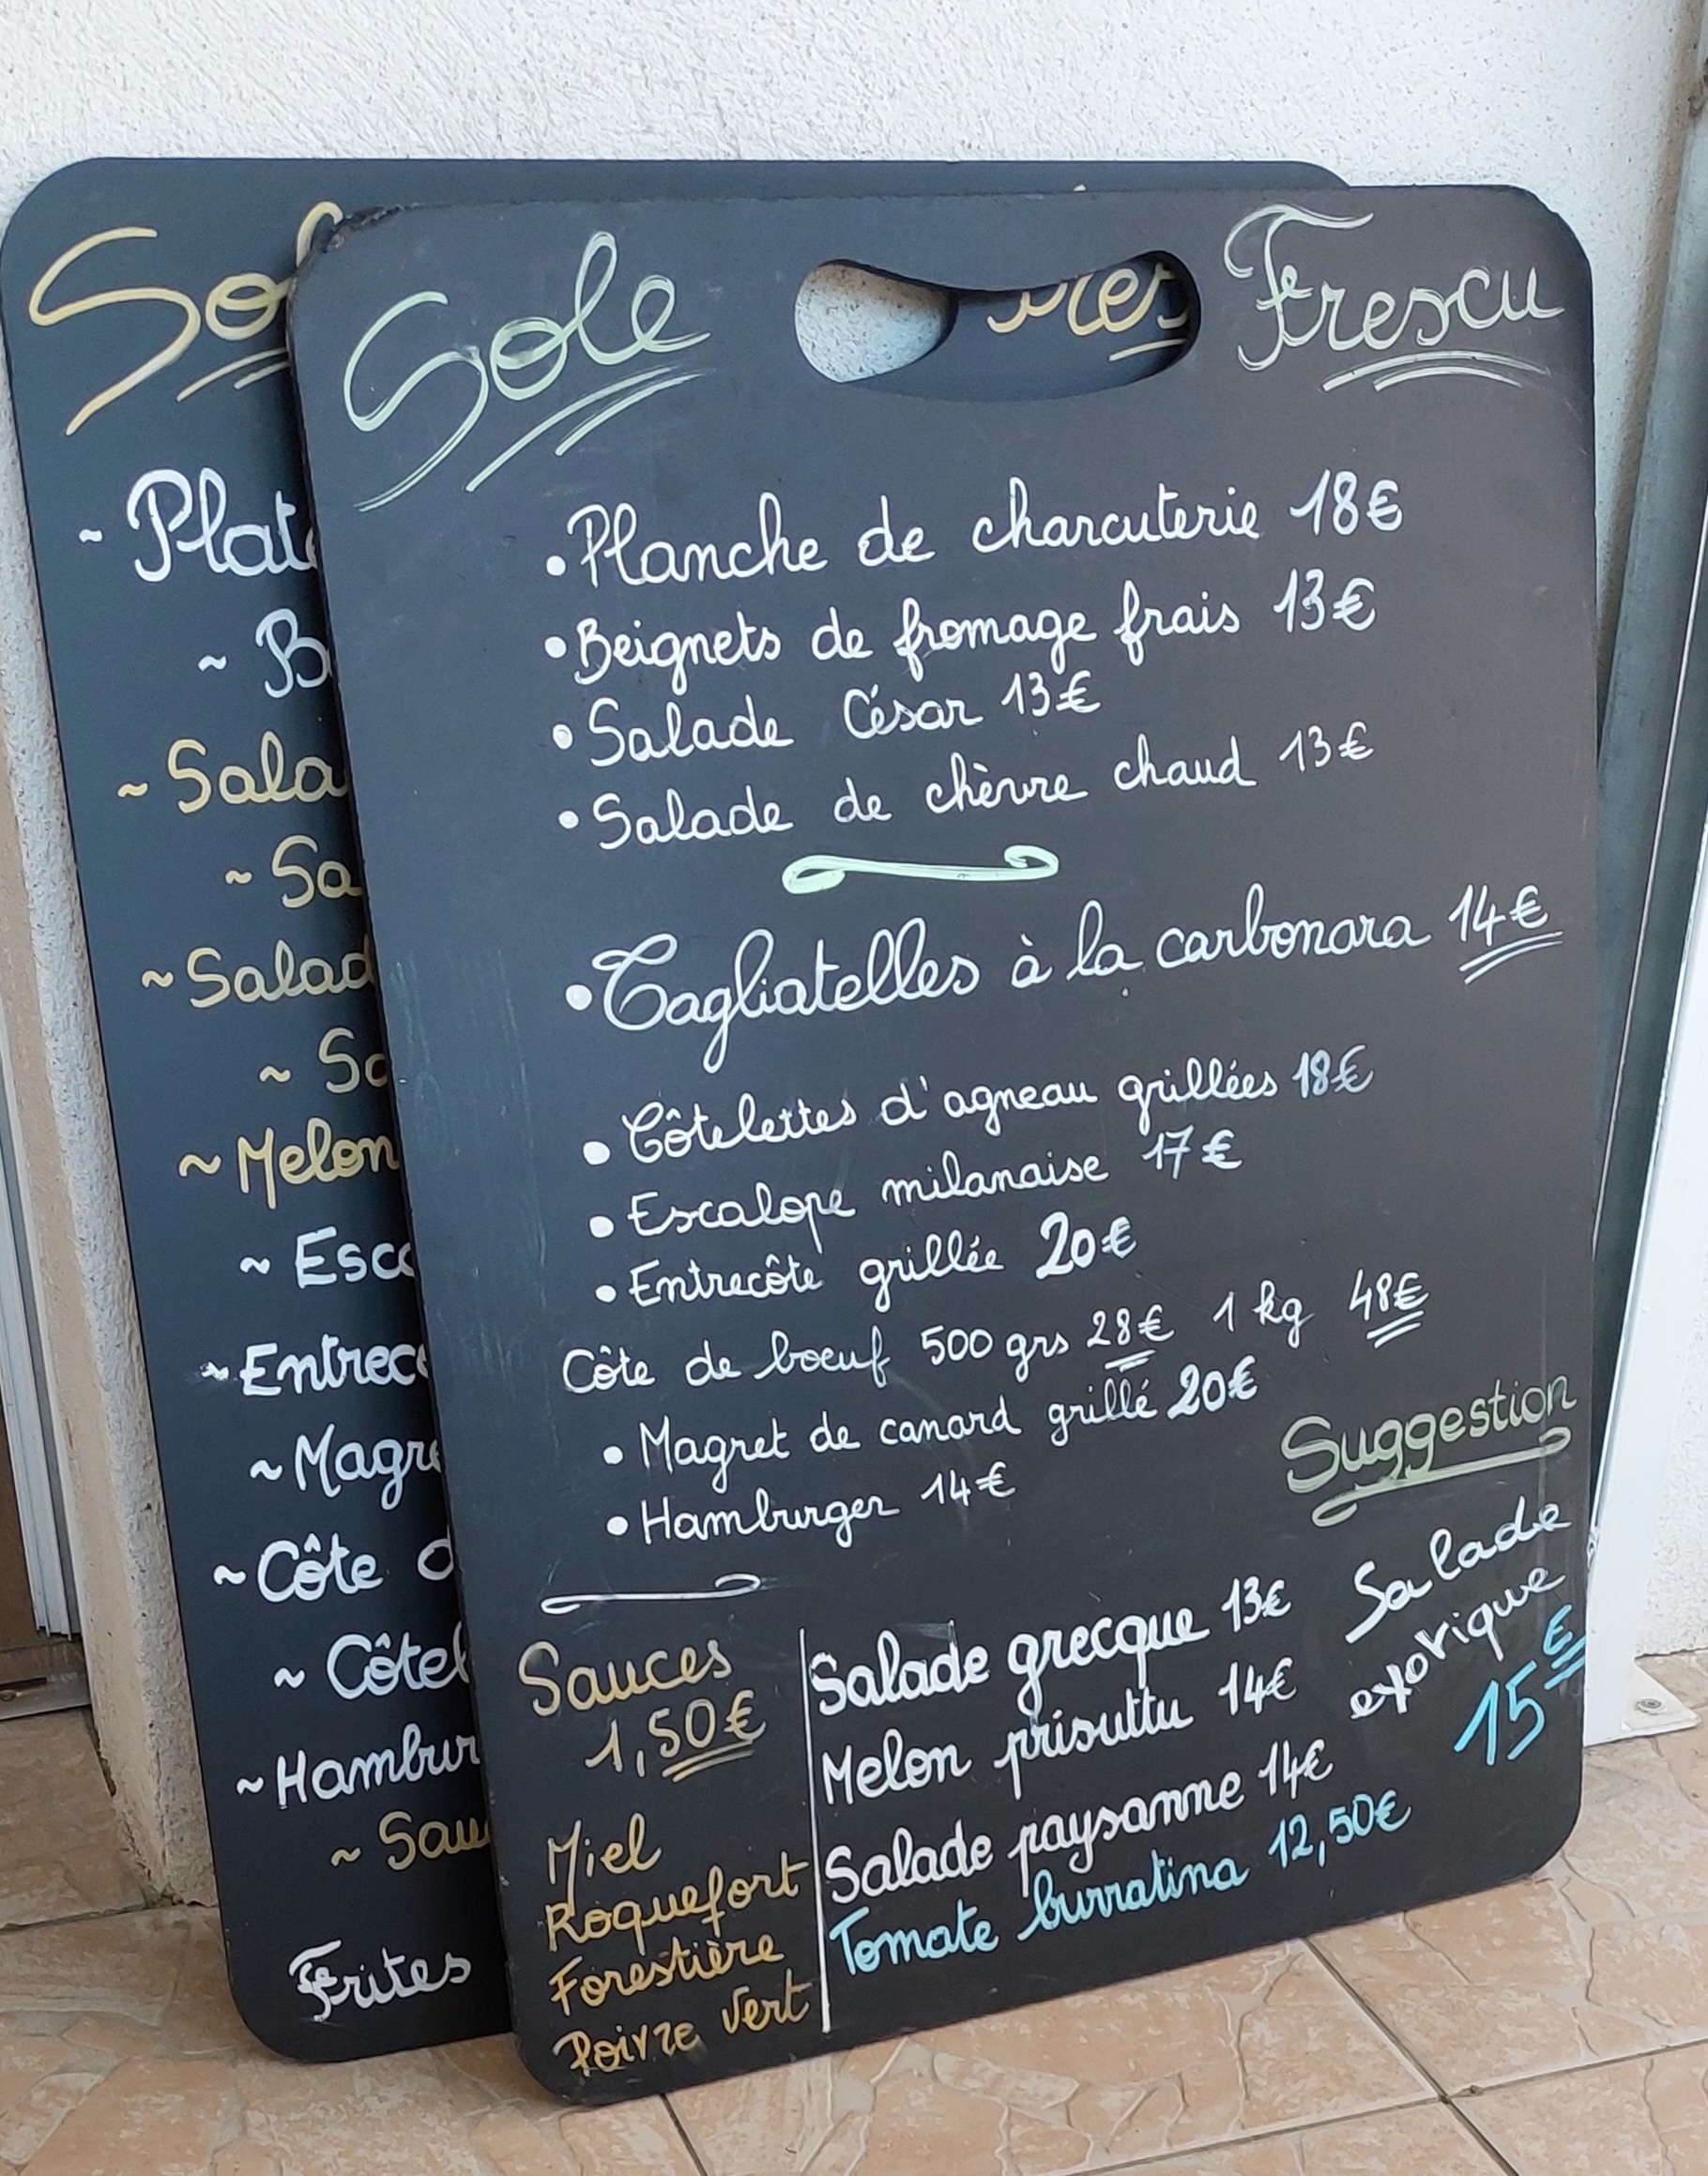 Sole Frescu
• Planche de charcuterie 18€
• Beignets de fromage frais 13€
• Salade César 13€
• Salade de chèvre chaud 13€
• Tagliatelles à la carbonara 14€
• Côtelettes d'agneau grillées 18€
• Escalope milanaise 17€
• Entrecôte grillée 20€
Côte de boeuf 500 grs 28€ 1 kg 48€
• Magret de canard grillé 20€
• Hamburger 14€
Suggestion
Salade
exotique
15€
Sauces
1,50€
Miel
Roquefort
Forestière
Poivre vert
Salade grecque 13€
Melon prisuttu 14€
Salade paysanne 14€
Tomate burratina 12,50€
~ Melon
Côte
Frites